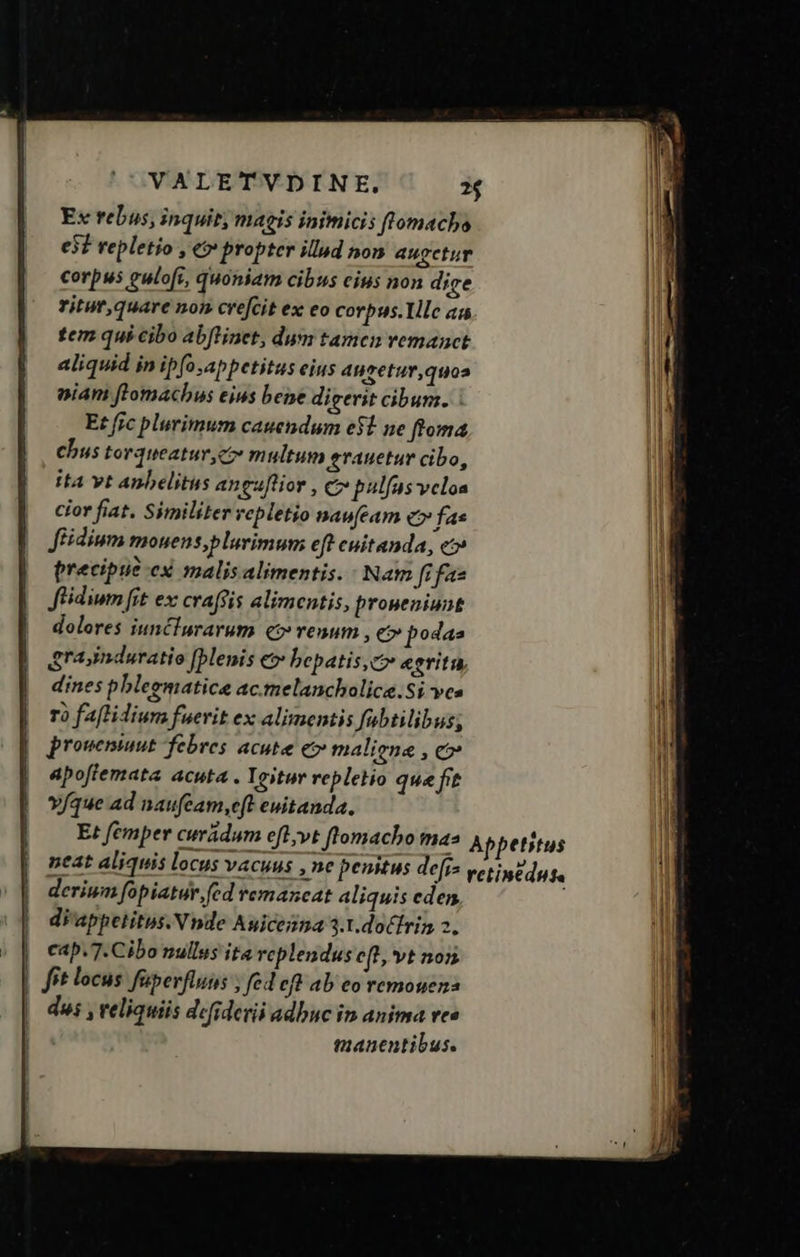 VALETVDINE. 25
Ex rebus, inquit, magis inimicis ſtomacho
eſt repletio, & propter illud non augetur
corpus guloſi, quoniam cibus eius non dige
ritur, quare non creſcit ex eo corpus. Ille au
tem qui cibo abſtinet, dum tamen remanet
aliquid in ipſo, appetitus eius augetur, quo⸗
niam ſtomachus eius bene digerit cibum.
Et ſic plurimum cauendum eſt ne ſtoma
chus torqueatur, & multum grauetur cibo,
ita vt anhelitus anguſtior, & pulſus veloa
cior fiat. Similiter repletio nauſeam & fas
ſtidium mouens, plurimum eſt euitanda, &
precipuè ex malis alimentis. Nam ſi faz
ſtidium ſit ex craſſis alimentis, proueniunt
dolores iuncturarum & renum, & podaa
gra, induratio ſplenis & hepatis, & ægritu
dines phlegmaticæ ac melancholicæ. Si vea
rò faſtidium fuerit ex alimentis ſubtilibus,
proueniuut febres acutæ & malignæ, &
apoſtemata acuta. Igitur repletio quæ fit
vſque ad nauſeam, eſt euitanda.
Et ſemper curãdum eſt, vt ſtomacho maa
Appetitus
neat aliquis locus vacuus, ne penitus deſiz
retinẽdus.
derium ſopiatur, ſed remaneat aliquis eden
di appetitus. Vnde Auicenna 3.1. doctrin 2.
cap. 7. Cibo nullus ita replendus eſt, vt non
ſit locus ſuperfluus, ſed eſt ab eo remouena
dus, reliquiis deſiderii adhuc in anima rea
manentibus.